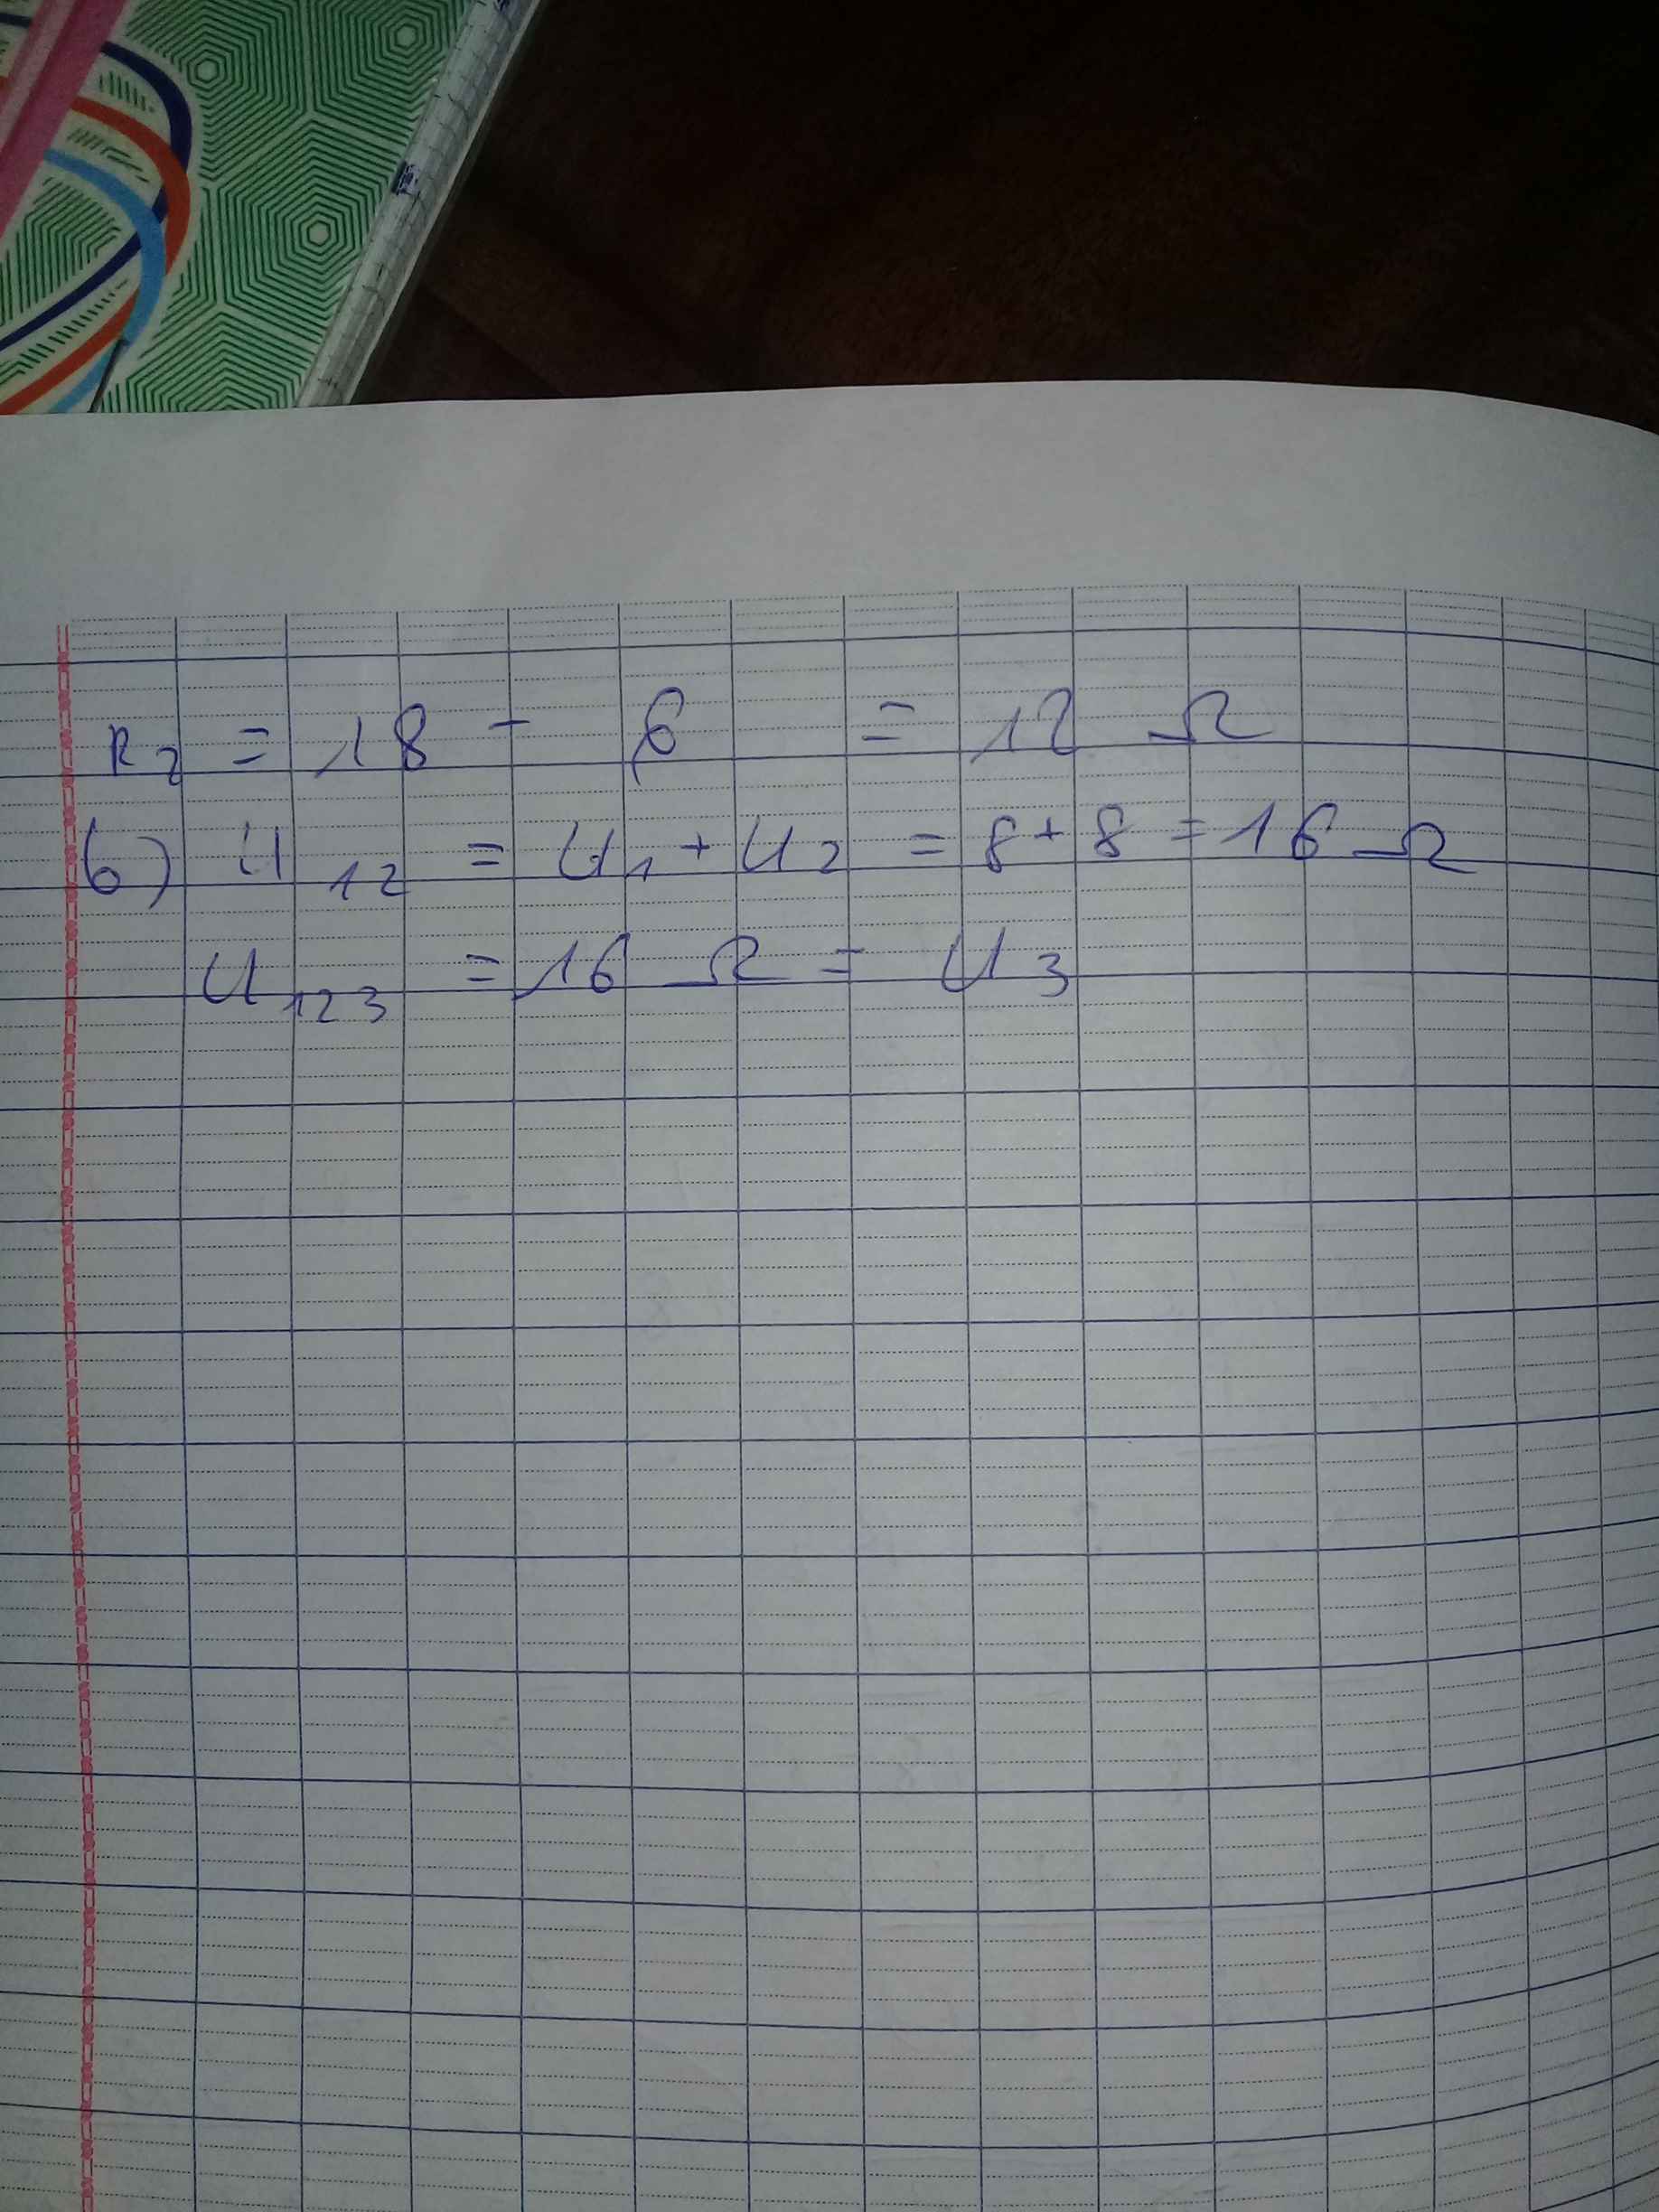 R2 = 18 - 6 = 12 Ω
b) U12 = U1 + U2 = 8 + 8 = 16 Ω
U123 = 16 Ω = U3